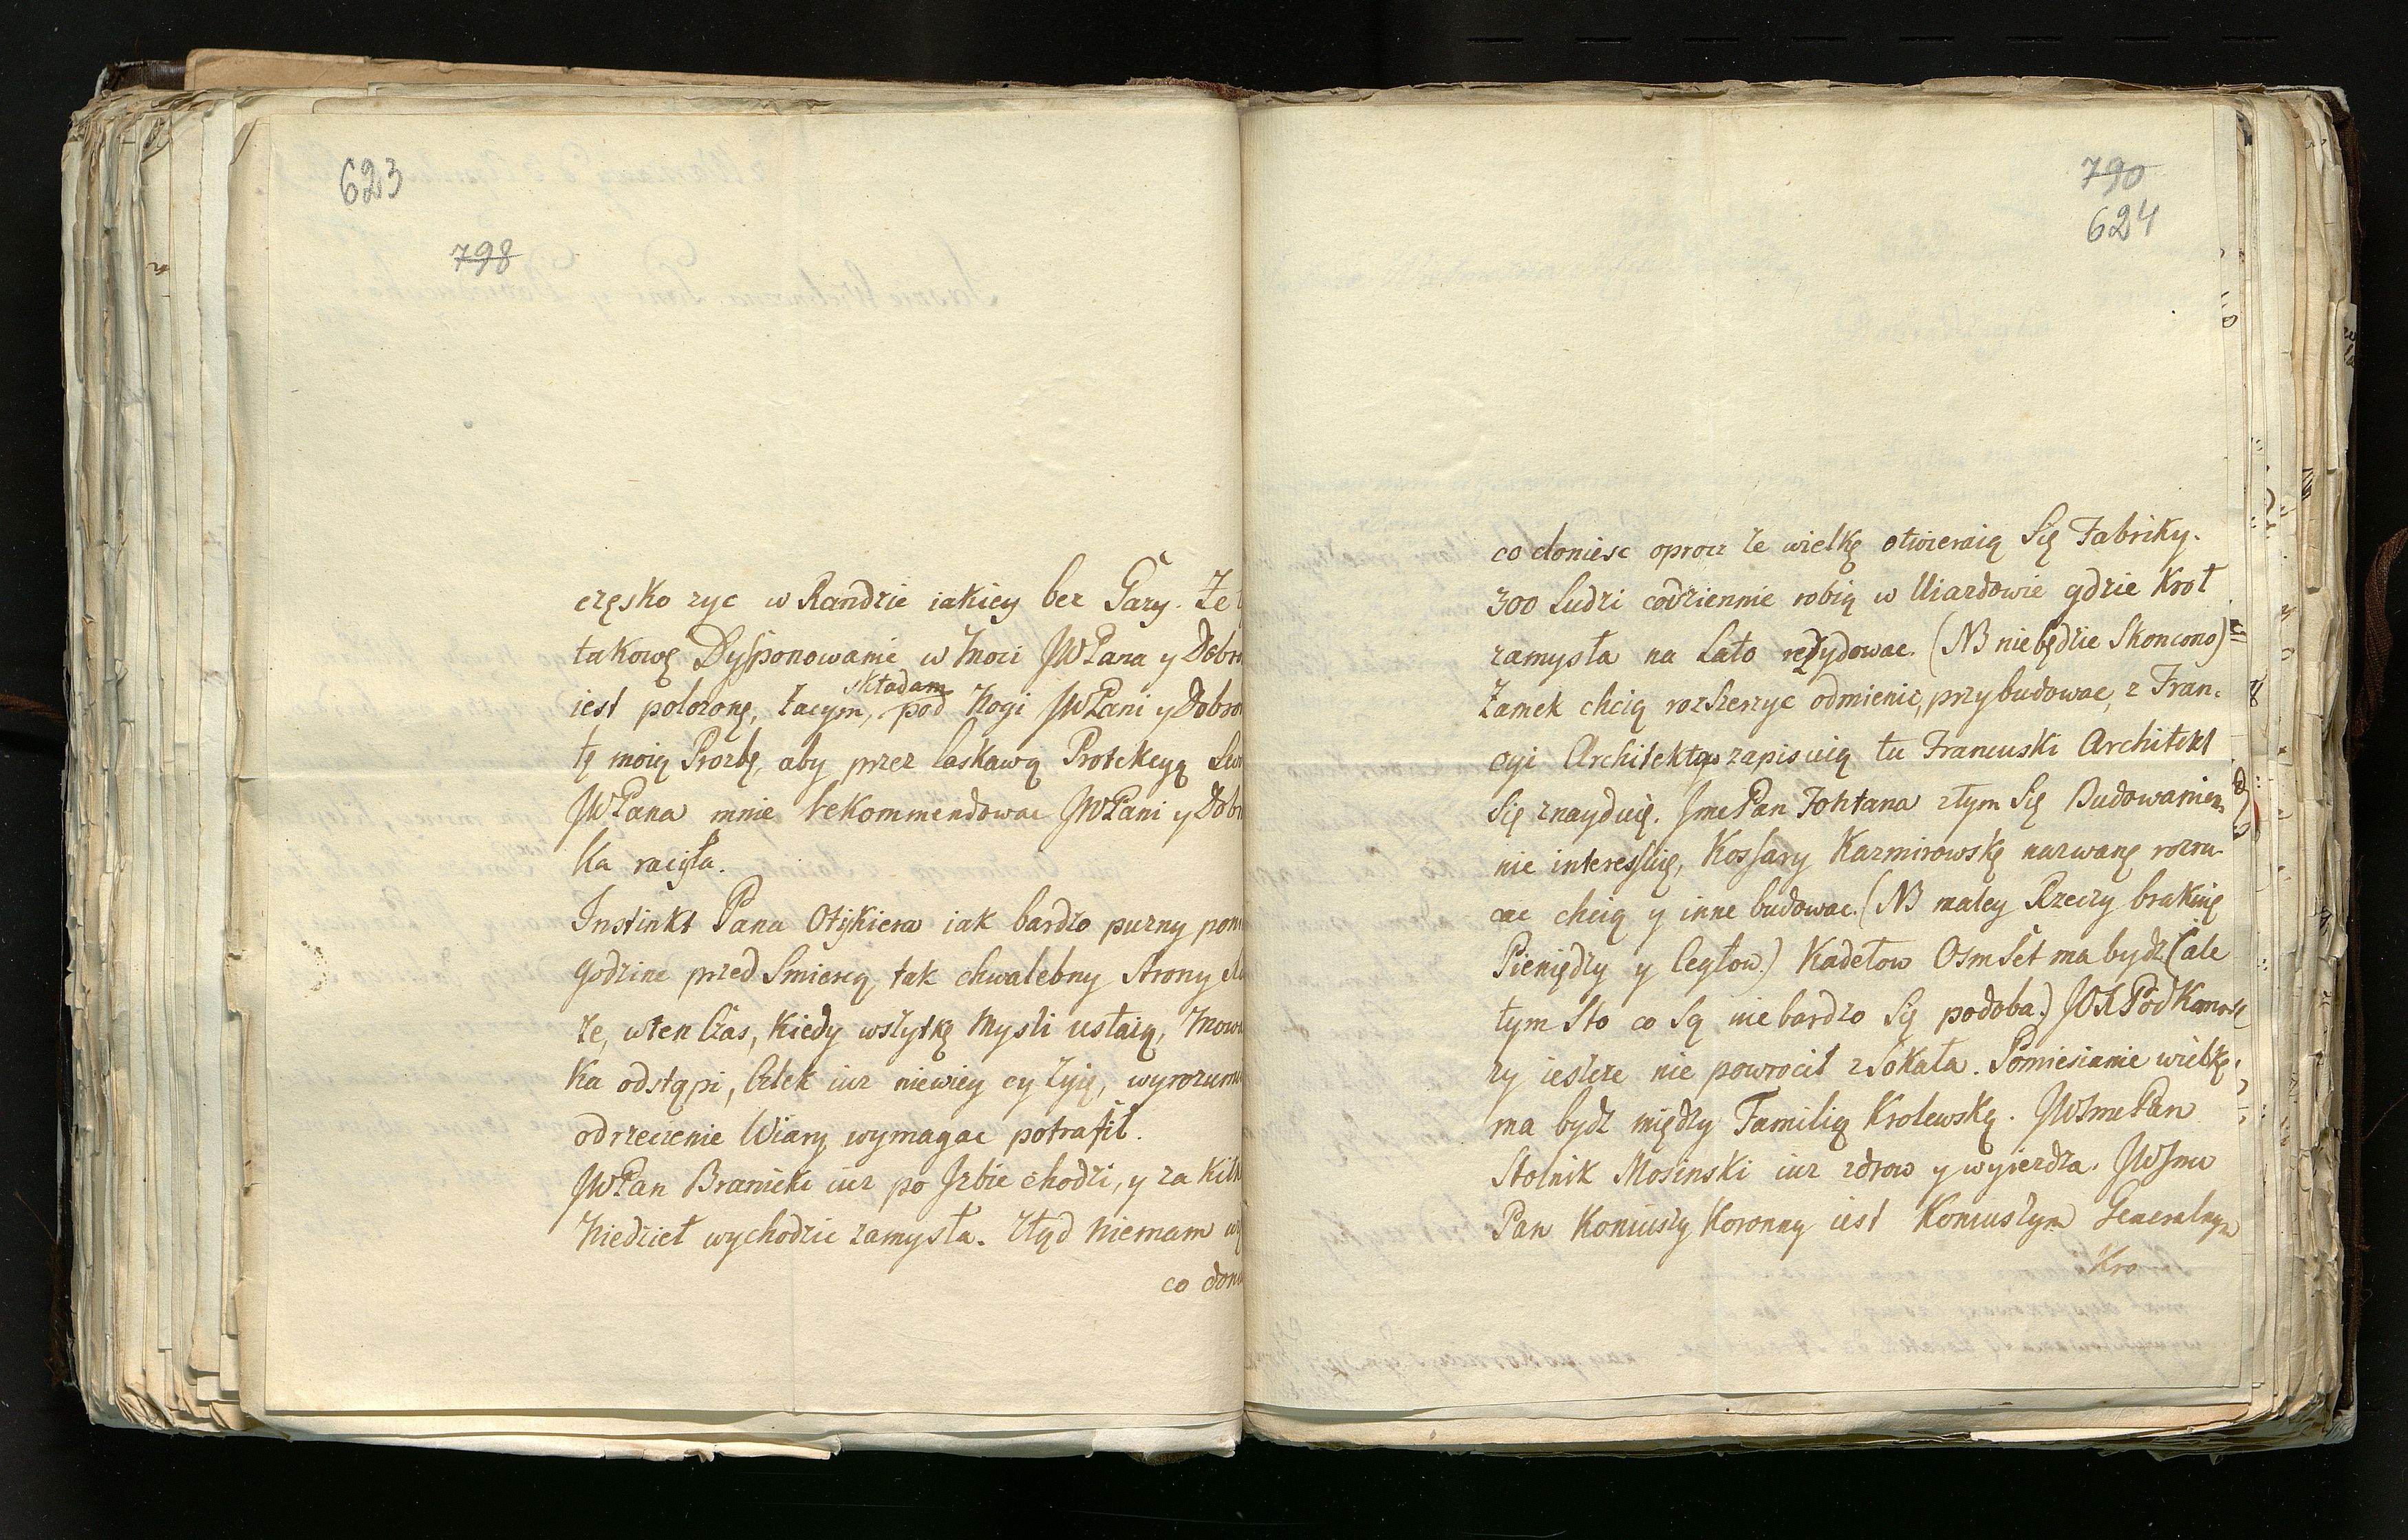 623
798
częsko zyc w Randzie iakiey bez Gazy. Ze
takowę Dysponowanie w Mocy JWPana y Dobro
iest polozonę, zaczym, składam pod Nogi JWPani y Dobro
tę moię Prozbę, aby przez łaskawą Protekcyą Swo
JWPana mnie rekommendowac JWPani y Dobro
ka raczyła.
Instinkt Pana Otykiera iak bardzo puzny pom
godzine przed Smiercą tak chwalebny Strony
ze, wten Czas, kiedy wszytkę Mysli ustaią, Mowa
ka odstąpi, Człek iuz niewiey cy zyię, wyrozum
odrzeczenie Wiary wymagac potrafił.
JWPan Branicki iuz po Jzbie chodzi, y za kilk
Niedziel wychodzic zamysla. Ztąd niemam wię
co doni
790
624
co doniesc oprocz ze wielkę otwieraią Się Fabriky.
300 Ludzi codziennie robią w Uiazdowie gdzie Krol
zamysla na Lato rezydowac. (NB niebędzie Skoncono)
Zamek chcią rozszerzyc odmienic, przybudowac, z Fran,
cyi Architektow zapisuią tu Francuski Architekt
Się znayduię. JmcPan Fontana ztym Się Budowaniem
nie interessuię, Kossary Kazmirowskę nazwanę rozru
cac chcią y inne budowac. (NB maley Rzeczy brakuię
Pieniędzy y Cegłow.) Kadetow Osm Set ma bydz (ale
tym Sto co Są nie bardzo Się podoba.) JWPPodKomor
zy ieszcze nie powrocił zSokala. Pomiesianie wielkę
ma bydz między Familią Krolewskę. JWJmcPan
Stolnik Mosinski iuz zdrow y wyiezdza. JWJmc
Pan Koniuszy Koronny iest Koniuszym Generalnym
Kro